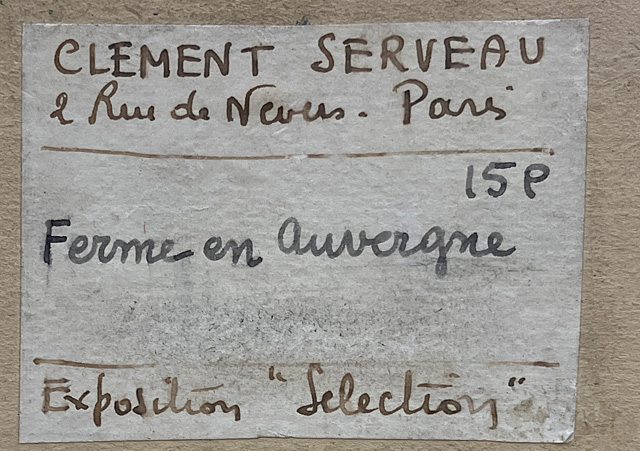 CLEMENT SERVEAU
2 Rue de Nevers - Paris
15P
Ferme en Auvergne
Exposition "Selection"